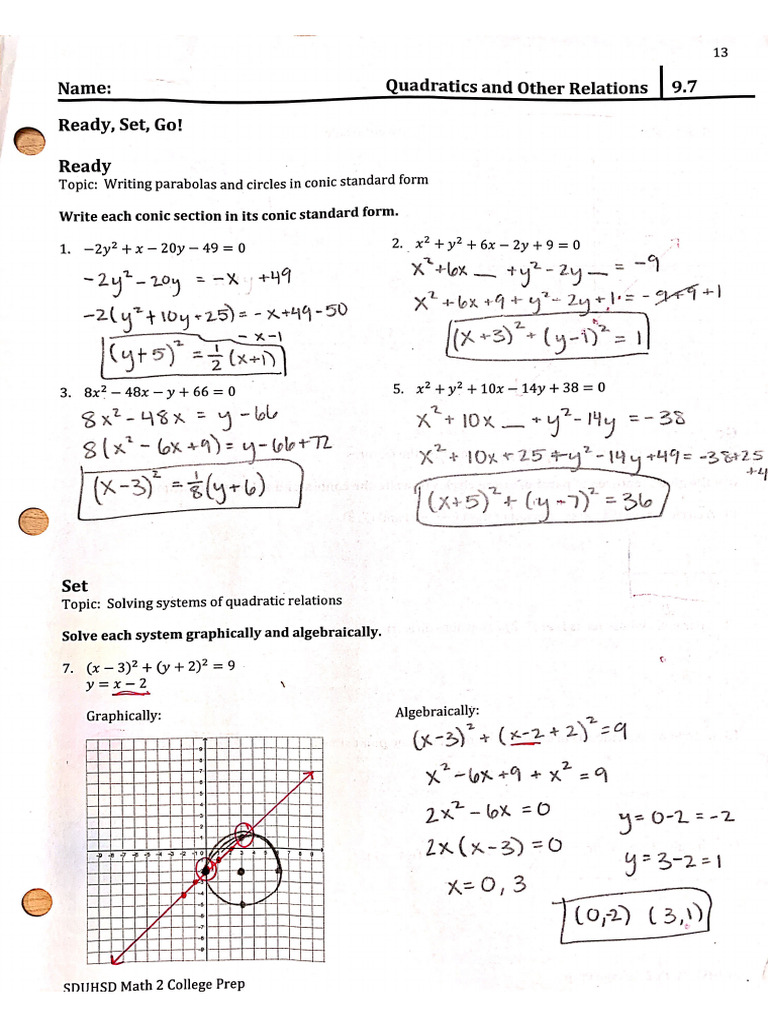 13
Name: Quadratics and Other Relations 9.7
Ready, Set, Go!
Ready
Topic: Writing parabolas and circles in conic standard form
Write each conic section in its conic standard form.
1. −2y² + x − 20y − 49 = 0
−2y² − 20y = −x + 49
−2(y² + 10y + 25) = −x + 49 − 50
−x−1
(y+5)² = 1/2 (x+1)
2. x² + y² + 6x − 2y + 9 = 0
x² + 6x __ + y² − 2y __ = −9
x² + 6x + 9 + y² − 2y + 1 = −9+9+1
(x+3)² + (y−1)² = 1
3. 8x² − 48x − y + 66 = 0
8x² − 48x = y − 66
8(x² − 6x + 9) = y − 66 + 72
(x−3)² = 1/8 (y+6)
5. x² + y² + 10x − 14y + 38 = 0
x² + 10x __ + y² − 14y = −38
x² + 10x + 25 + y² − 14y + 49 = −38+25
+4
(x+5)² + (y−7)² = 36
Set
Topic: Solving systems of quadratic relations
Solve each system graphically and algebraically.
7. (x − 3)² + (y + 2)² = 9
y = x − 2
Graphically:
Algebraically:
(x−3)² + (x−2+2)² = 9
x² − 6x + 9 + x² = 9
2x² − 6x = 0
2x(x−3) = 0
x = 0, 3
y = 0−2 = −2
y = 3−2 = 1
(0,−2) (3,1)
SDUHSD Math 2 College Prep